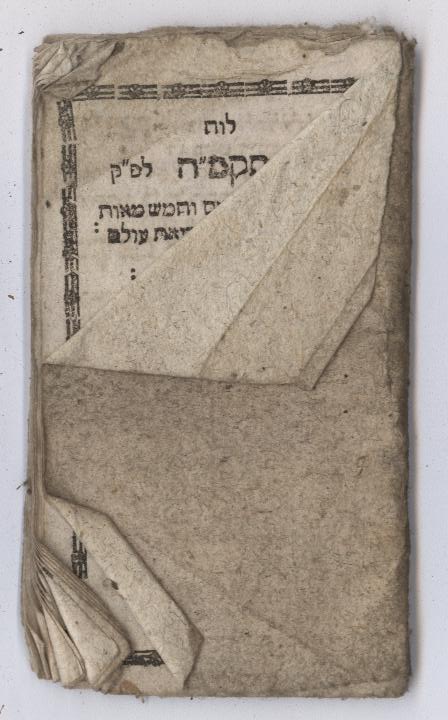 לוח
תקס״ה לפ״ק
ים וחמש מאות
יאת עולם :
: